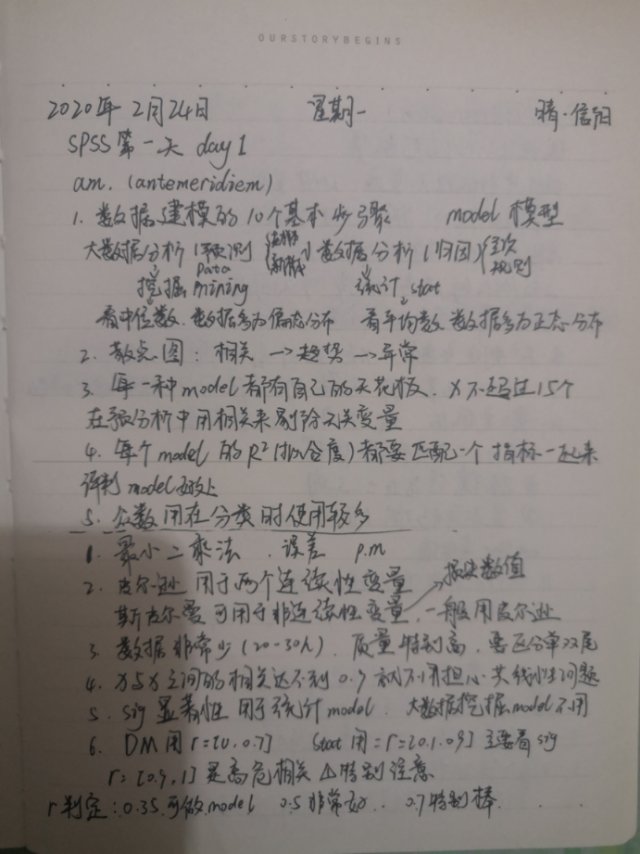 OURSTORYBEGINS
2020年 2月24日 星期一 晴·信阳
SPSS 第一天 day1
am. (antemeridiem)
1. 数据建模的10个基本步骤 model 模型
大数据分析 (预测 小数据分析 (归因) 规则
挖掘 Data mining 统计 stat
看中位数. 数据多为偏态分布 看平均数 数据多为正态分布
2. 散点图: 相关 → 趋势 → 异常
3. 每一种model都有自己的天花板. X不超过15个
在预分析中用相关来剔除无关变量
4. 每个model 的R²(拟合度)都要匹配一个指标一起来
评判model好处
5. 众数用在分类时使用较多
1. 最小二乘法. 误差 p.m
2. 皮尔逊 用于两个连续性变量 数值
斯皮尔曼 可用于非连续性变量, 一般用皮尔逊
3. 数据非常少 (20-30个). 质量特别高, 要区分单双尾
4. X与X之间的相关达不到0.9就不用担心共线性问题
5. sig 显著性 用于统计model. 大数据挖掘model不用
6. DM 用 r=[0,0.7] stat 用: r=[0.1,0.9] 主要看sig
r=[0.9,1] 是高危相关 △特别注意
r判定: 0.35 可做model 0.5 非常好.. 0.7特别棒.